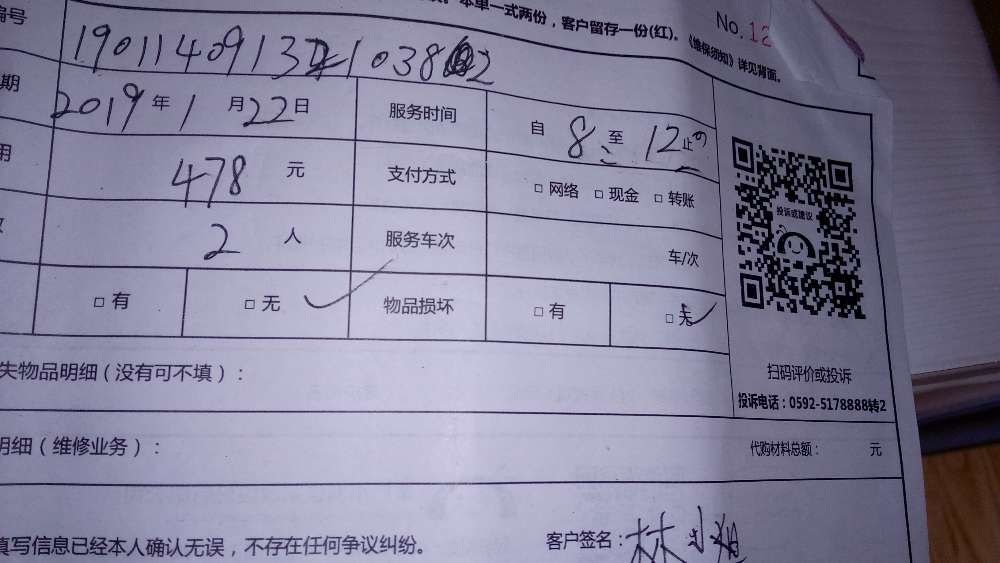 本单一式两份，客户留存一份(红)。《维保须知》详见背面。
No. 12
编号
期 2019 年 1 月 22 日 服务时间 自 8 至 12 止
用 478 元 支付方式 □ 网络 □ 现金 □ 转账
2 人 服务车次 车/次
□ 有 □ 无 物品损坏 □ 有 □ 无
投诉或建议
扫码评价或投诉
投诉电话：0592-5178888转2
失物品明细（没有可不填）：
明细（维修业务）： 代购材料总额： 元
填写信息已经本人确认无误，不存在任何争议纠纷。 客户签名：林